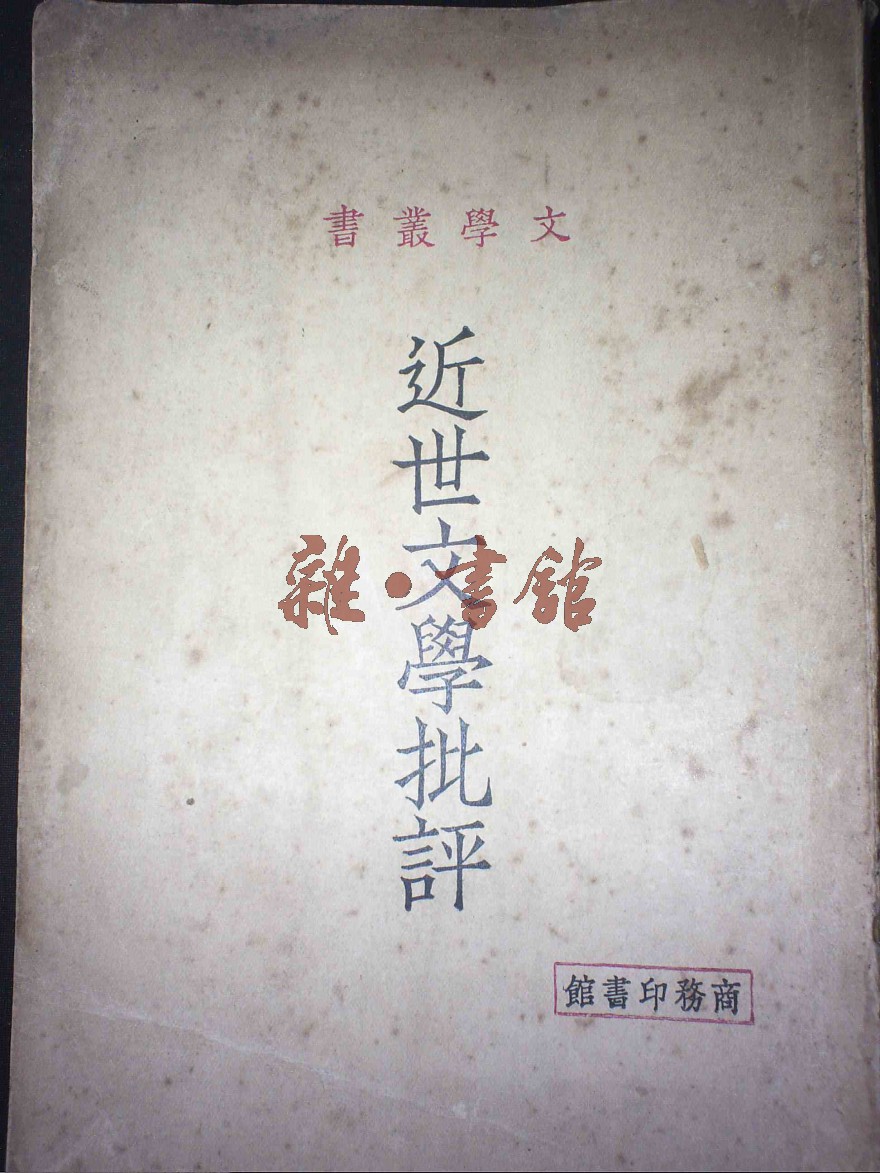 文學叢書
近世文學批評
雜·書館
商務印書館